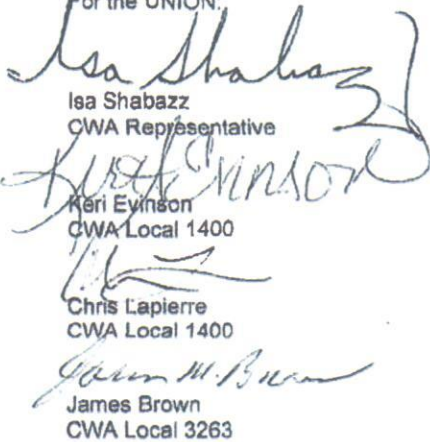 For the UNION:
Isa Shabazz
Isa Shabazz
CWA Representative
Keri Evinson
Keri Evinson
CWA Local 1400
Chris Lapierre
CWA Local 1400
James M. Brown
James Brown
CWA Local 3263